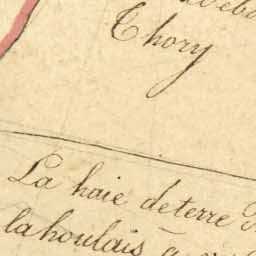 Thory
La haie deterre
lahoulais à